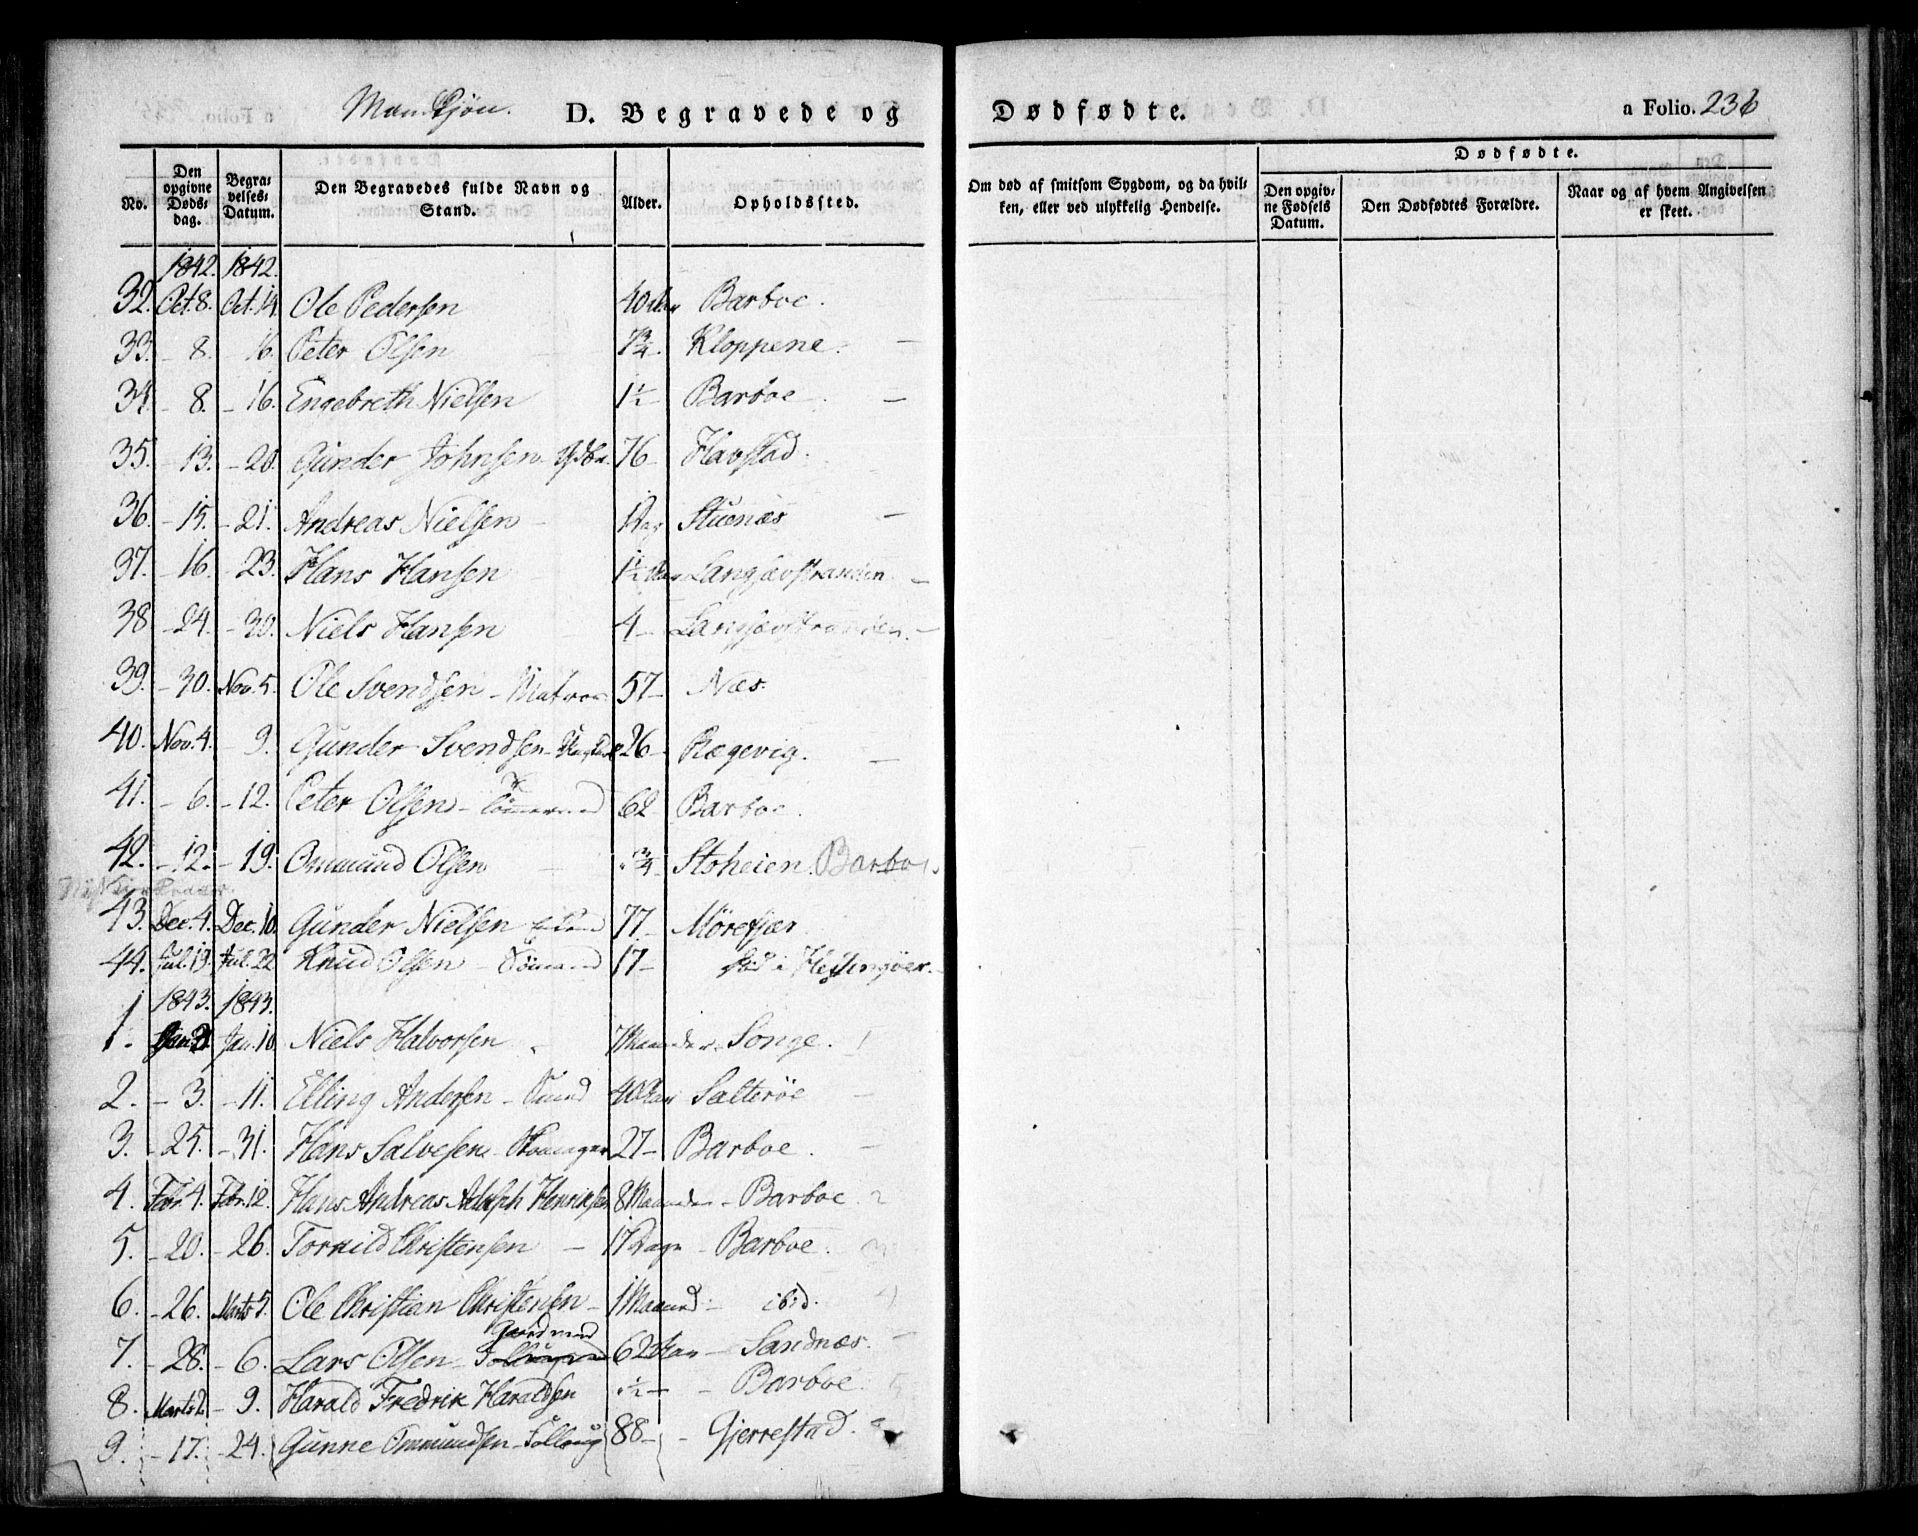 Mandkjøn. D. Begravede og Dødfødte. a Folio. 236
No. Den opgivne Døds-dag. Begra-velses-Datum. Den Begravedes fulde Navn og Stand. Alder. Opholdssted. Om død af smitsom Sygdom, og da hvil-ken, eller ved ulykkelig Hendelse. Dødfødte. Den opgiv-ne Fødsels Datum. Den Dødfødtes Forældre. Naar og af hvem Angivelsen er skeet.
1842. 1842.
32. Oct. 8. Oct. 14. Ole Pedersen 40 Barboe.
33. - 8. - 16. Peter Olsen - 3/4. Kloppene. -
34. - 8. - 16. Engebreth Nielsen 1 1/2 - Barboe - -
35. - 13. - 20. Gunder Johnsen - 76 - Havstad.
36. - 15. - 21. Andreas Nielsen - 1 Dag Stuenæs -
37. - 16. - 23. Hans Hansen 1 1/2 Aar Langsævstranden. -
38. - 24. - 30. Niels Hansen 4 - Langsævstranden. -
39. - 30. Nov. 5. Ole Svendsen - Matros 57 - Næs.
40. Nov. 4. - 9. Gunder Svendsen - 26 - Rægevig. -
41. - 6. - 12. Peter Olsen - Tømmermand 62 Barboe.
42. - 12. - 19. Ommund Olsen - 3/4 Stoheien. Barboe.
43. Dec. 4. Dec. 10. Gunder Nielsen 77 - Mørefjær
44. Jul. 19. Jul. 22 Knud Olsen - Sømand 17 - død i Helsingöer. -
1843. 1843.
1. Jan. Jan. 10 Niels Halvorsen 7 Maaneder - Songe. 1
2. - 3. - 11. Elling Andersen - 40 Aar Salterøe -
3. - 25. - 31. Hans Salvesen - 27 - Barboe. -
4. Febr. 4. Febr. 12. Hans Andreas Adolph Henriksen 8 Maaneder - Barboe 2
5. - 20. - 26. Torkild Christensen - 17 Dage - Barboe. 3
6. - 26. Marts 5. Ole Christian Christensen - 1 Maaned - ibid. 4
Gaardmand
7. - 28. - 6. Lars Olsen - 62 Aar - Sandnæs. -
8. Marts 2 - 9. Harald Fredrik Haraldsen 1/2 - - Barboe.
9. - 17. - 24. Gunne Ommundsen - 88 - - Gjerrestad.